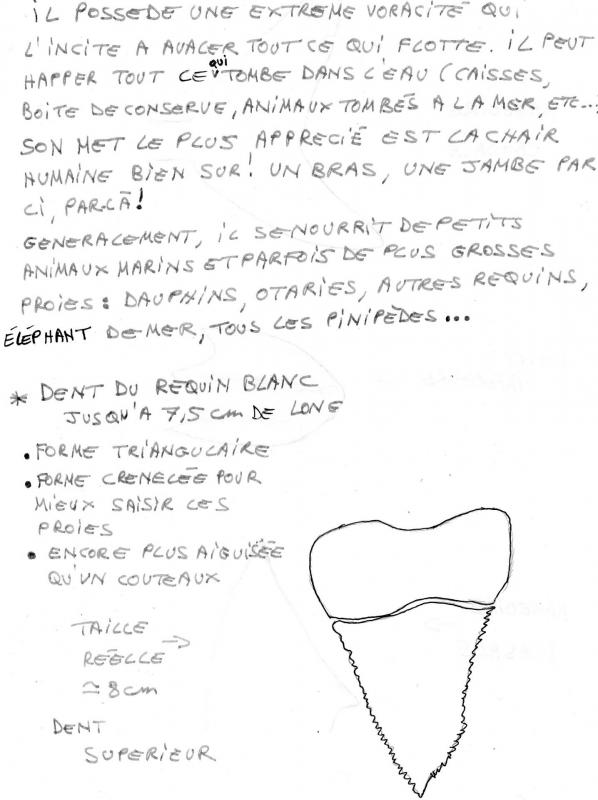 iL POSSEDE UNE EXTREME VORACITÉ QUI
L'INCITE A AVALER TOUT CE QUI FLOTTE. iL PEUT
HAPPER TOUT CE qui TOMBE DANS L'EAU (CAISSES,
BOITE DE CONSERVE, ANIMAUX TOMBÉS A LA MER, ETC...
SON MET LE PLUS APPRECIÉ EST LA CHAIR
HUMAINE BIEN SUR! UN BRAS, UNE JAMBE PAR
CI, PAR-LÀ!
GENERALEMENT, iL SE NOURRIT DE PETITS
ANIMAUX MARINS ET PARFOIS DE PLUS GROSSES
PROIES : DAUPHINS, OTARIES, AUTRES REQUINS,
ÉLÉPHANT DE MER, TOUS LES PINIPÈDES...
* DENT DU REQUIN BLANC
JUSQU'A 7,5 cm DE LONG
• FORME TRIANGULAIRE
• FORME CRENELÉE POUR
MIEUX SAISIR LES
PROIES
• ENCORE PLUS AIGUISÉE
QU'UN COUTEAUX
TAILLE →
RÉELLE
≃ 8 cm
DENT
SUPERIEUR